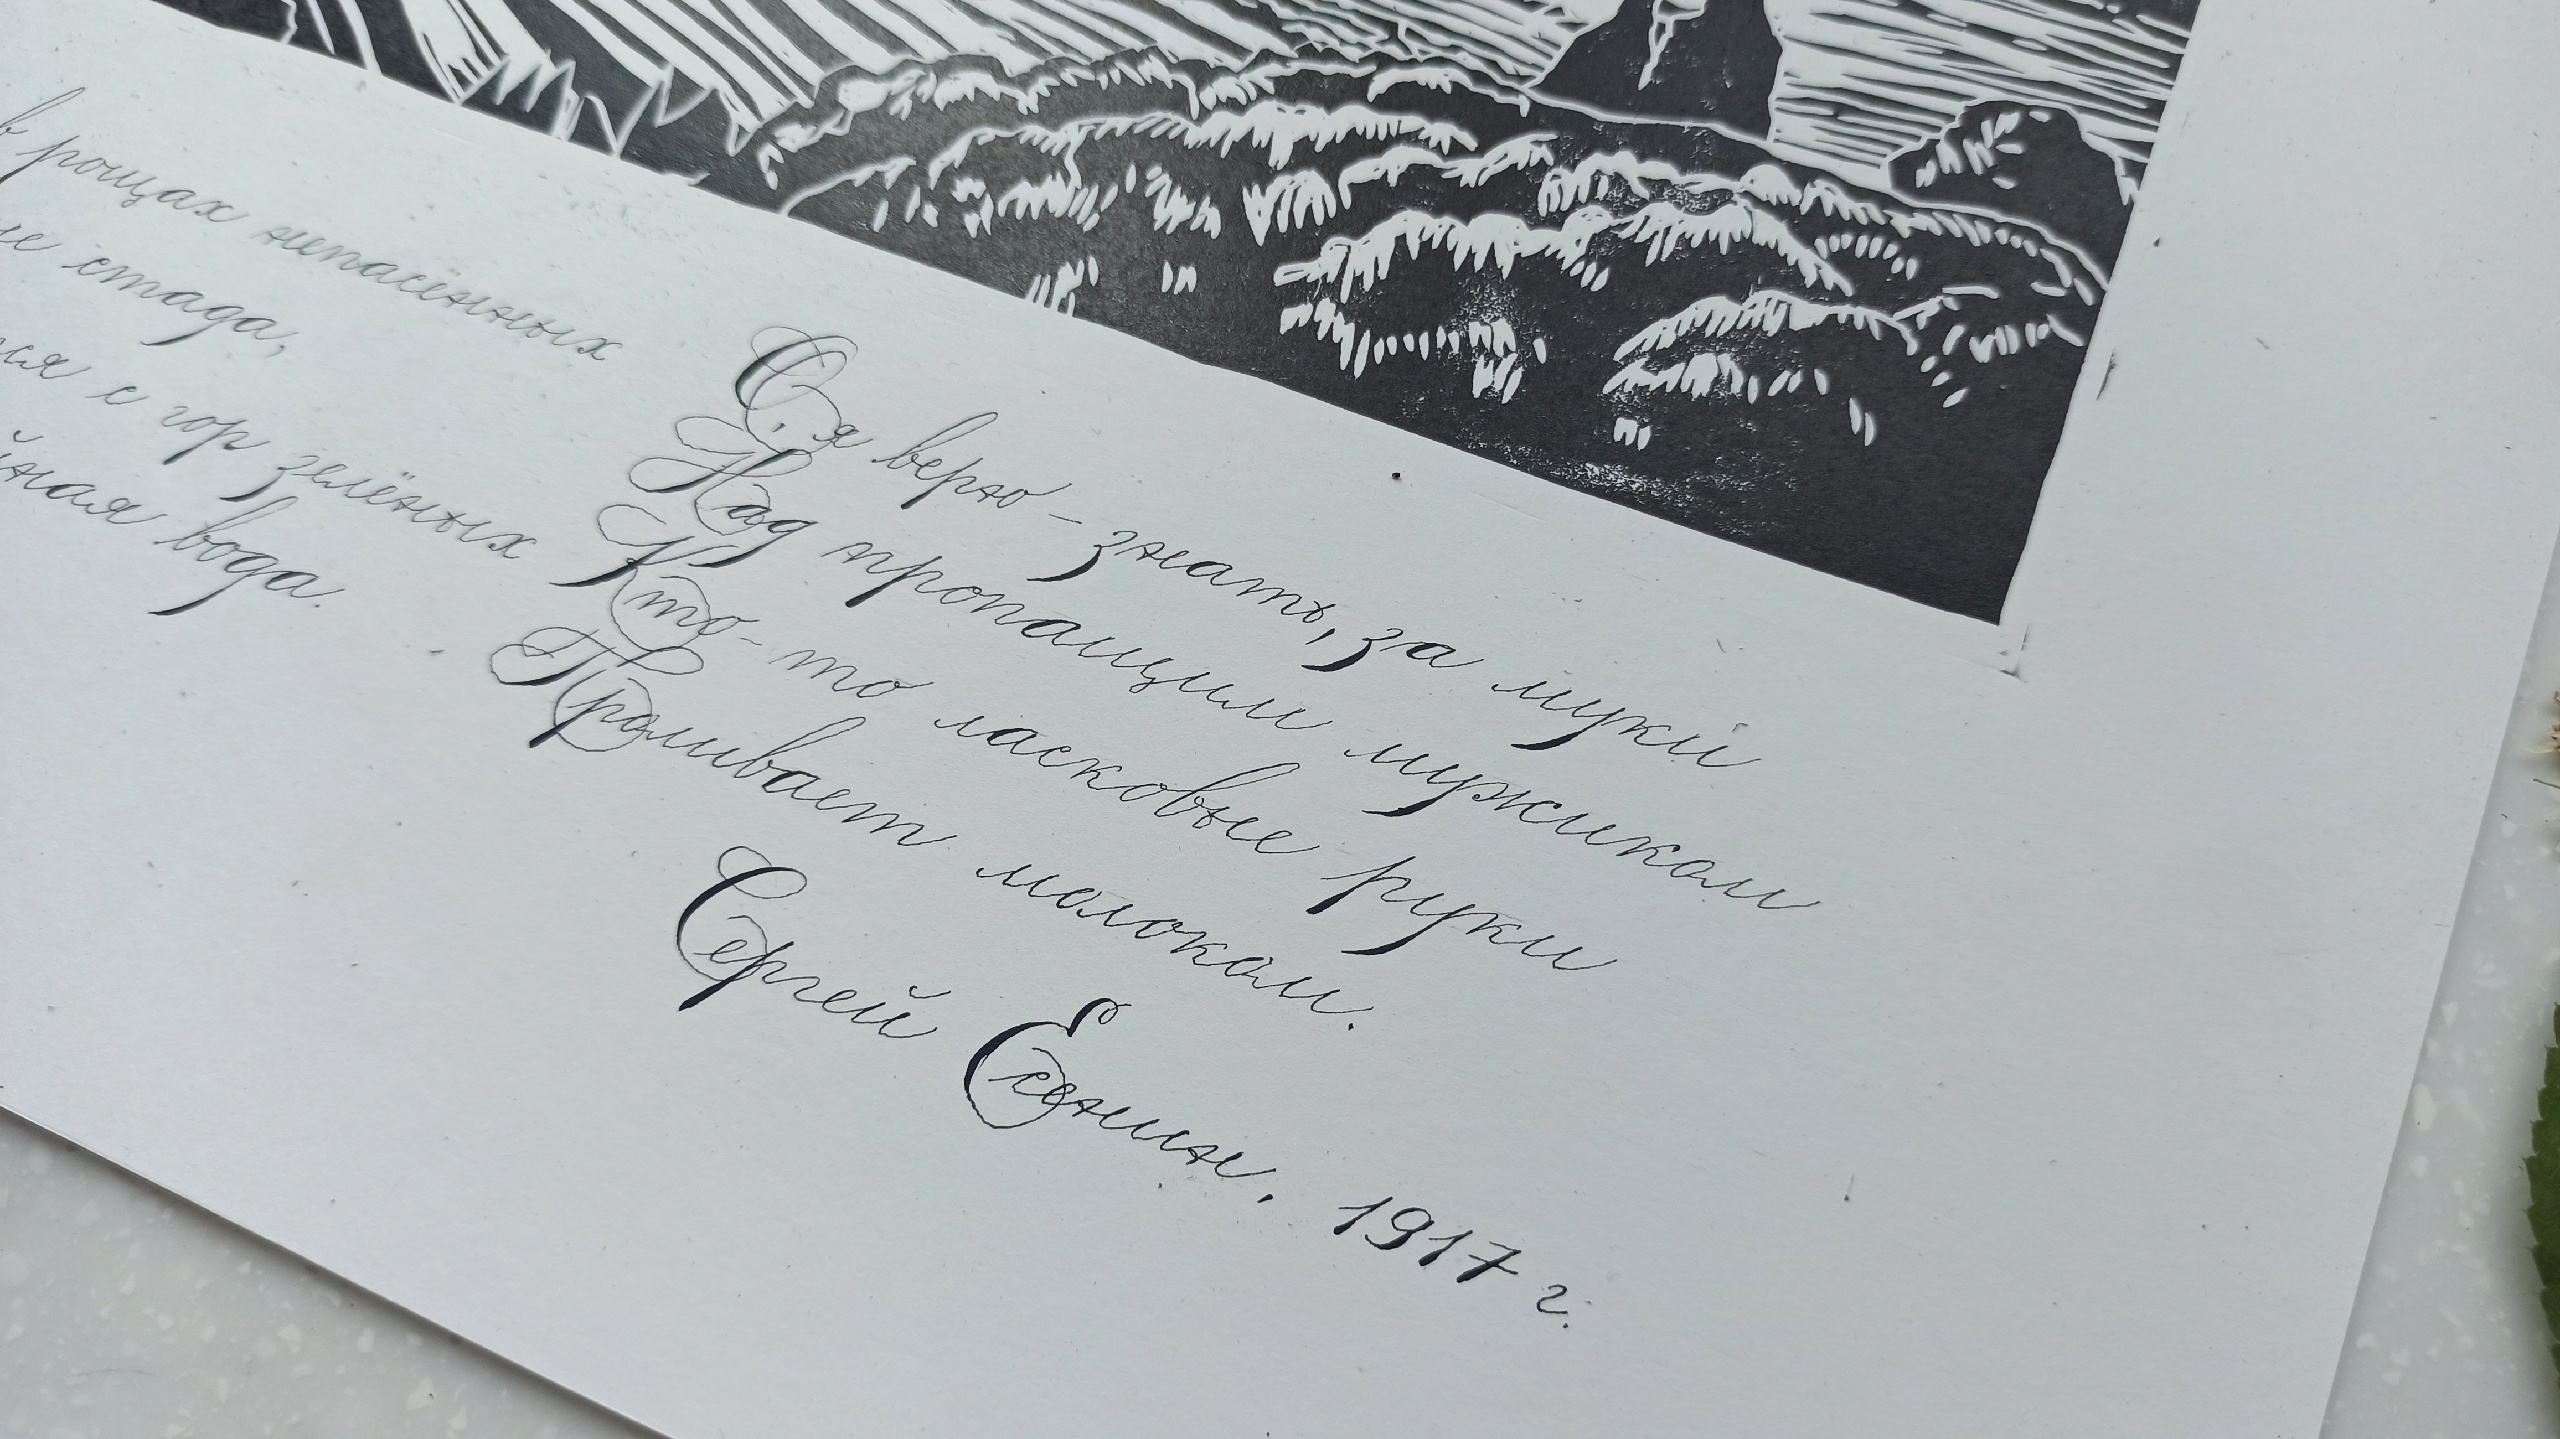 в рощах непасённых
стада,
с гор зелёных
вода.
О, я верю – знать, за муки
Над пропащим мужиком
Кто-то ласковые руки
Проливает молоком.
Сергей Есенин, 1917 г.